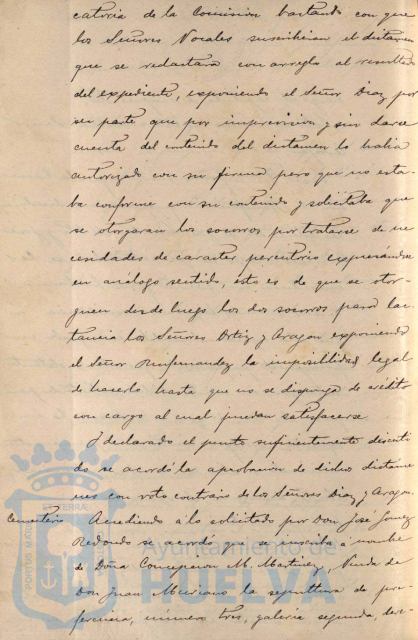 catoria de la Comision bastando con que
los Señores Vocales suscribieran el dictamen
que se redactara con arreglo al resultado
del expediente, exponiendo el Señor Diaz por
su parte que por imprevision y sin darse
cuenta del contenido del dictamen lo habia
autorizado con su firma pero que no esta-
ba conforme con su contenido y solicitaba que
se otorgaran los socorros por tratarse de ne
cesidades de caracter perentorio expresandose
en análogo sentido, esto es de que se otor-
guen desde luego los dos socorros para lac-
tancia los Señores Ortiz y Aragon exponiendo
el Señor Runfernandez la imposibilidad legal
de hacerlo hasta que no se disponga de crédito
con cargo al cual puedan satisfacerse.
Y declarado el punto suficientemente discuti
do se acordó la aprobacion de dichos dictame
nes con voto contrario de los Señores Diaz y Aragon
Cementerio Accediendo á lo solicitado por Don José Gomez
Redondo se acordó que se inscriba á nombre
de Doña Concepcion M. Martinez, Viuda de
Don Juan Merciano la sepultura de pre-
ferencia, número tres, galeria segunda, dere-
PORTUS MARIS ET TERRAE
Ayuntamiento de
HUELVA